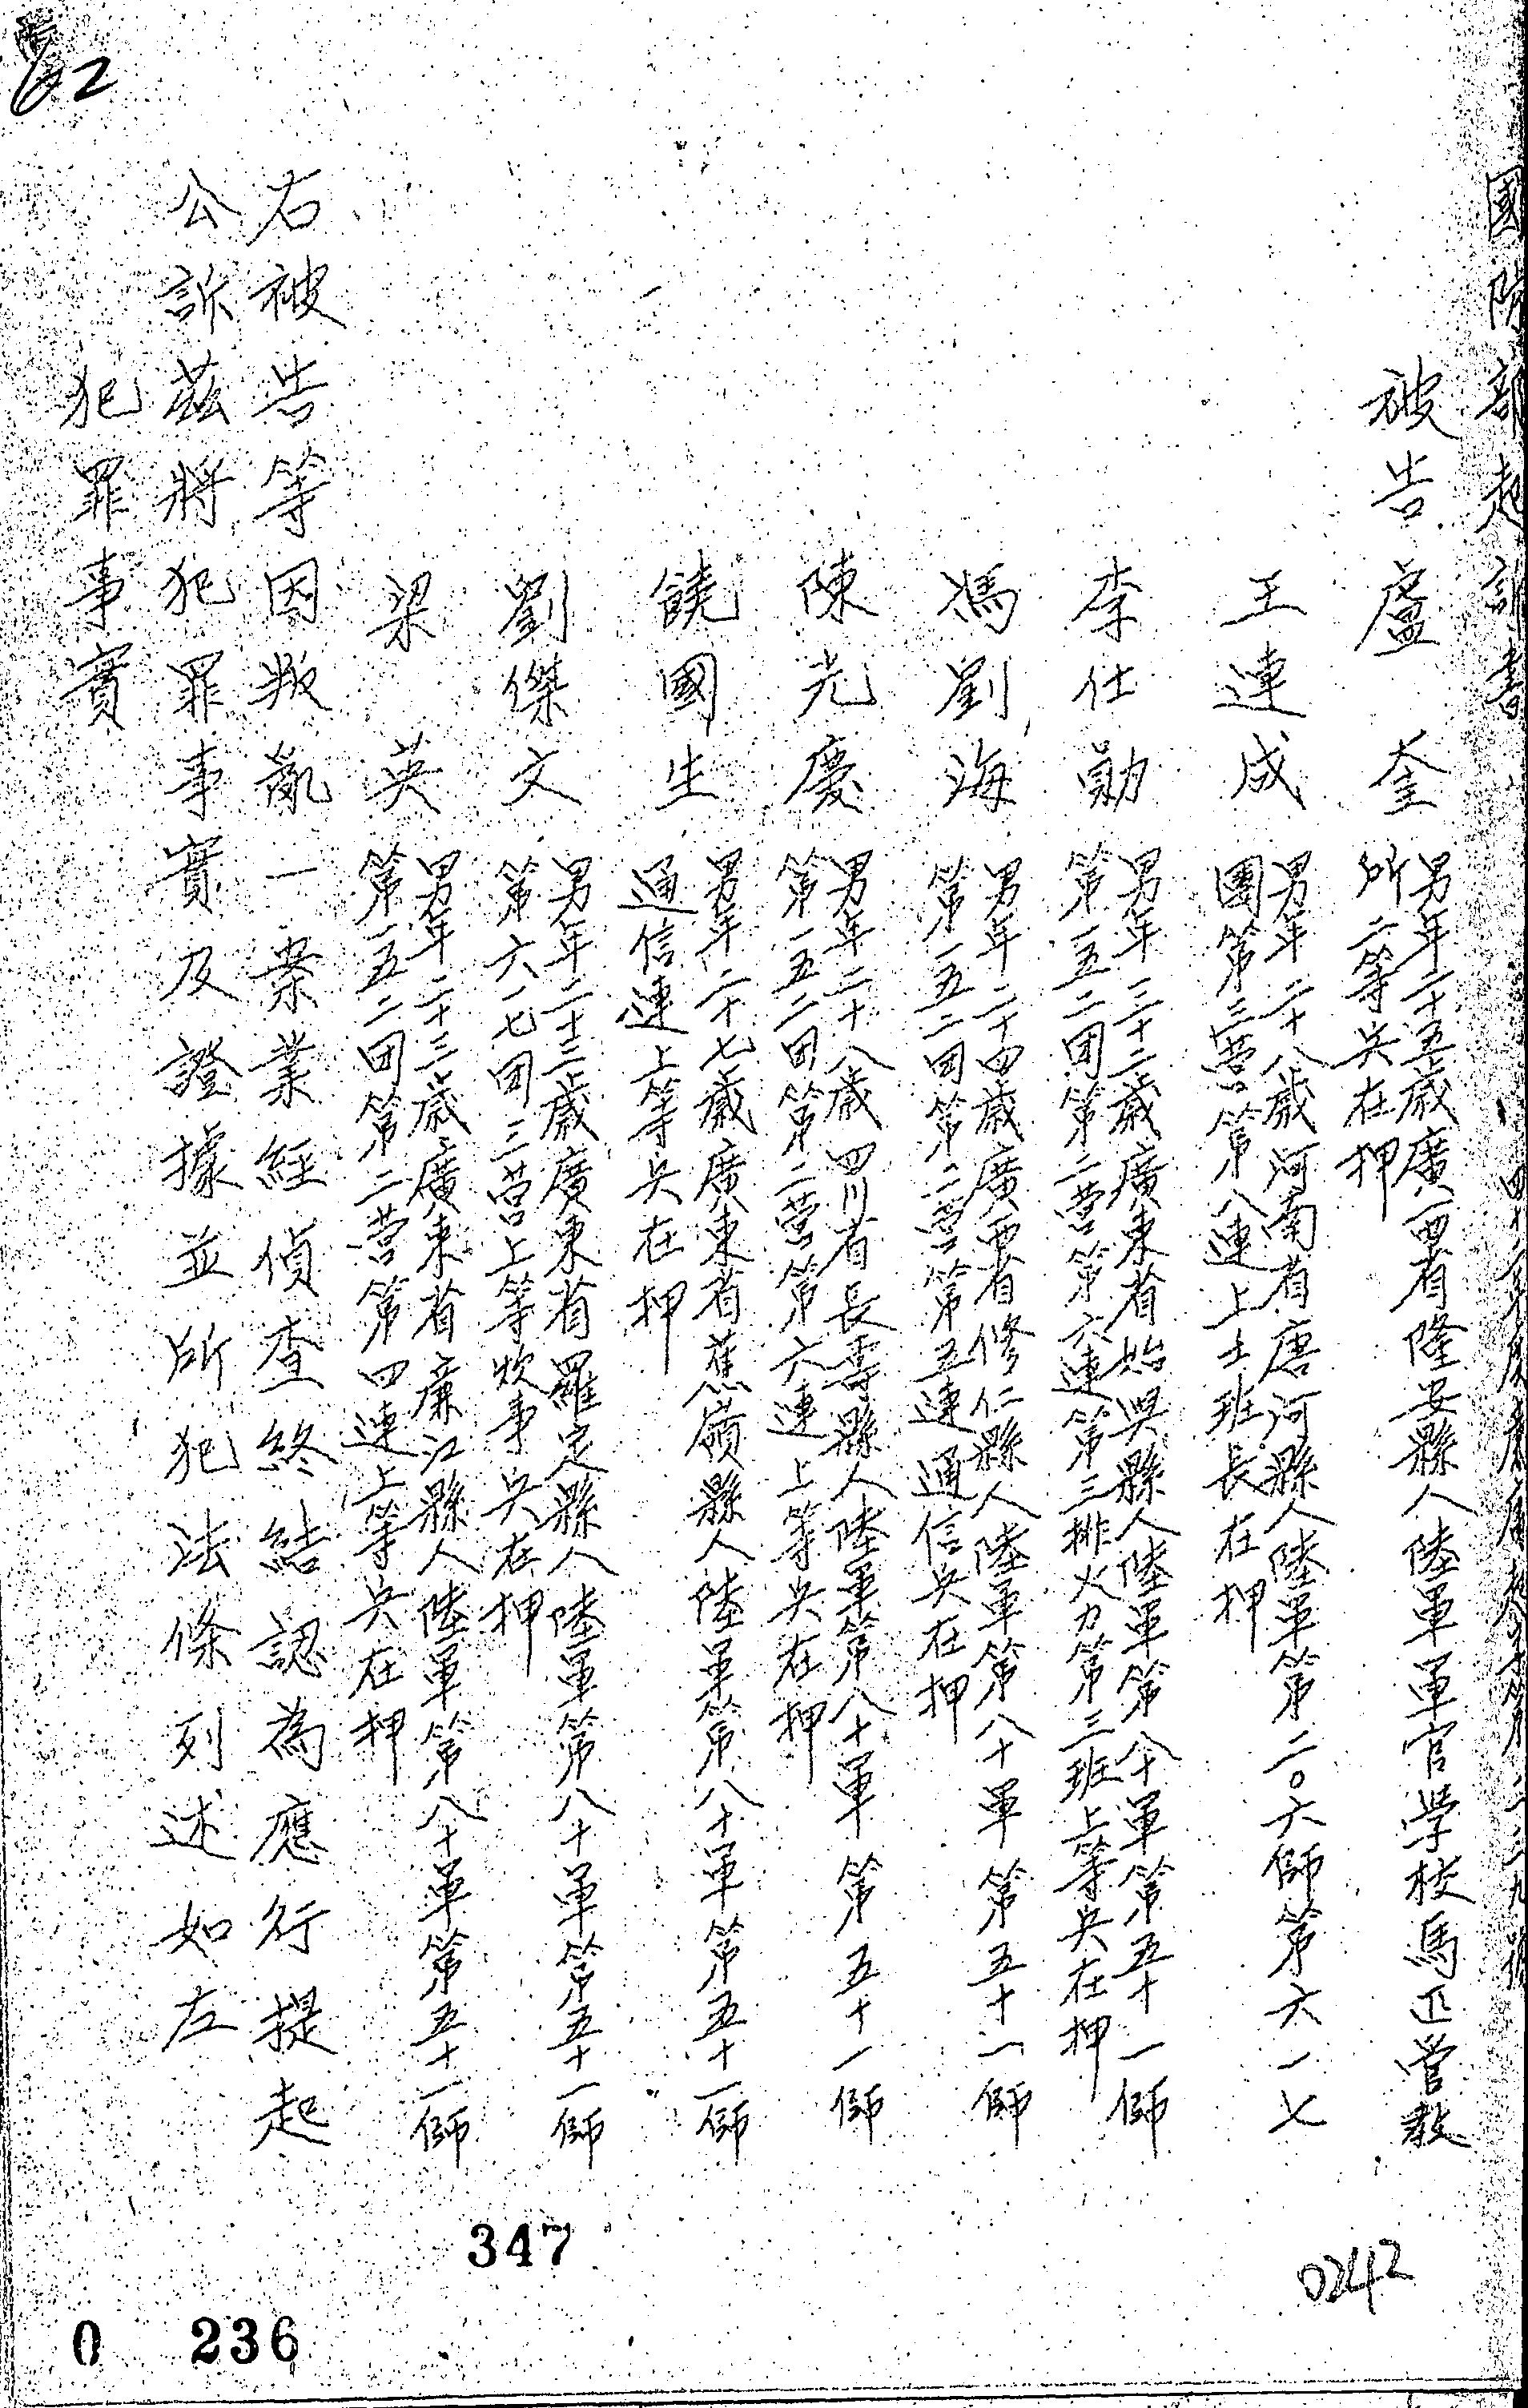 國防部起訴書
被告 盧 奎 男年二十五歲廣西省隆安縣人陸軍軍官學校馬匹管教
所二等兵在押
王連成 男年二十八歲河南省唐河縣人陸軍第二〇六師第六一七
團第三營第八連上士班長在押
李仕勛 男年三十二歲廣東省始興縣人陸軍第八十軍第五十一師
第一五二团第二營第六連第三排火力第三班上等兵在押
馮劉海 男年二十四歲廣西省修仁縣人陸軍第八十軍第五十一師
第一五二团第二營第五連通信兵在押
陳光慶 男年二十八歲四川省長壽縣人陸軍第八十軍第五十一師
第一五二团第二營第六連上等兵在押
饒國生 男年二十七歲廣東省蕉嶺縣人陸軍第八十軍第五十一師
通信連上等兵在押
劉傑文 男年二十三歲廣東省羅定縣人陸軍第八十軍第五十一師
第六一七团三营上等炊事兵在押
梁 英 男年二十三歲廣東省廉江縣人陸軍第八十軍第五十一師
第一五二团第二營第四連上等兵在押
右被告等因叛亂一案業經偵查終結認為應行提起
公訴茲將犯罪事實及證據並所犯法條列述如左
犯罪事實
62
347
0242
0 236